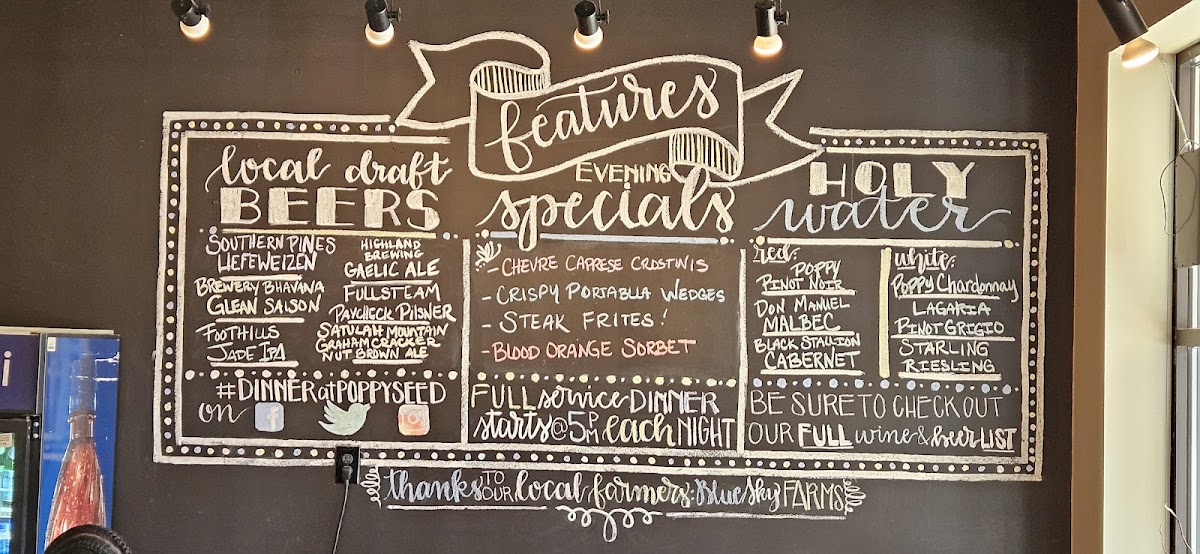 features
local draft
BEERS
SOUTHERN PINES
HEFEWEIZEN
BREWERY BHAVANA
GLEAN SAISON
FOOTHILLS
JADE IPA
HIGHLAND
BREWING
GAELIC ALE
FULLSTEAM
PAYCHECK PILSNER
SATULAH MOUNTAIN
GRAHAM CRACKER
NUT BROWN ALE
#DINNERatPOPPYSEED
on
EVENING
specials
- CHEVRE CAPRESE CROSTINIS
- CRISPY PORTABLLA WEDGES
- STEAK FRITES!
- BLOOD ORANGE SORBET
FULL service DINNER
starts @ 5 PM each NIGHT
HOLY
water
red:
POPPY
PINOT NOIR
DON MANUEL
MALBEC
BLACK STALLION
CABERNET
white:
POPPY CHARDONNAY
LAGARIA
PINOT GRIGIO
STARLING
RIESLING
BE SURE TO CHECK OUT
OUR FULL wine & beer LIST
thanks TO OUR local farmers: Blue Sky FARMS